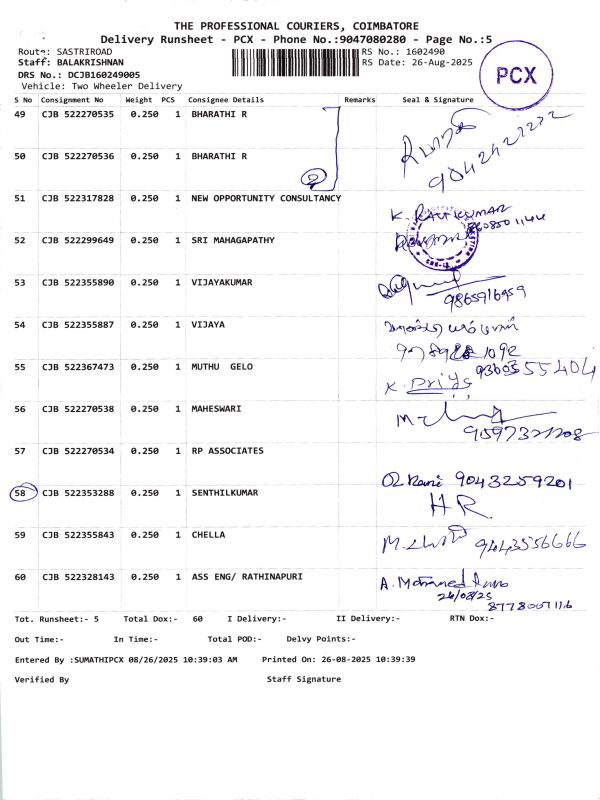 THE PROFESSIONAL COURIERS, COIMBATORE
Delivery Runsheet - PCX - Phone No.:9047080280 - Page No.:5
Route: SASTRIROAD
RS No.: 1602490
Staff: BALAKRISHNAN
RS Date: 26-Aug-2025
DRS No.: DCJB160249005
Vehicle: Two Wheeler Delivery
PCX
S No Consignment No Weight PCS Consignee Details Remarks Seal & Signature
49 CJB 522270535 0.250 1 BHARATHI R
50 CJB 522270536 0.250 1 BHARATHI R
2
51 CJB 522317828 0.250 1 NEW OPPORTUNITY CONSULTANCY
K. RAVIKUMAR
52 CJB 522299649 0.250 1 SRI MAHAGAPATHY
53 CJB 522355890 0.250 1 VIJAYAKUMAR
9865916959
54 CJB 522355887 0.250 1 VIJAYA
55 CJB 522367473 0.250 1 MUTHU GELO
K. priya
56 CJB 522270538 0.250 1 MAHESWARI
57 CJB 522270534 0.250 1 RP ASSOCIATES
58 CJB 522353288 0.250 1 SENTHILKUMAR
9043259201
HR
59 CJB 522355843 0.250 1 CHELLA
9443556666
60 CJB 522328143 0.250 1 ASS ENG/ RATHINAPURI
A. Mohamed
26/08/25
8778007116
Tot. Runsheet:- 5 Total Dox:- 60 I Delivery:- II Delivery:- RTN Dox:-
Out Time:- In Time:- Total POD:- Delvy Points:-
Entered By :SUMATHIPCX 08/26/2025 10:39:03 AM Printed On: 26-08-2025 10:39:39
Verified By Staff Signature